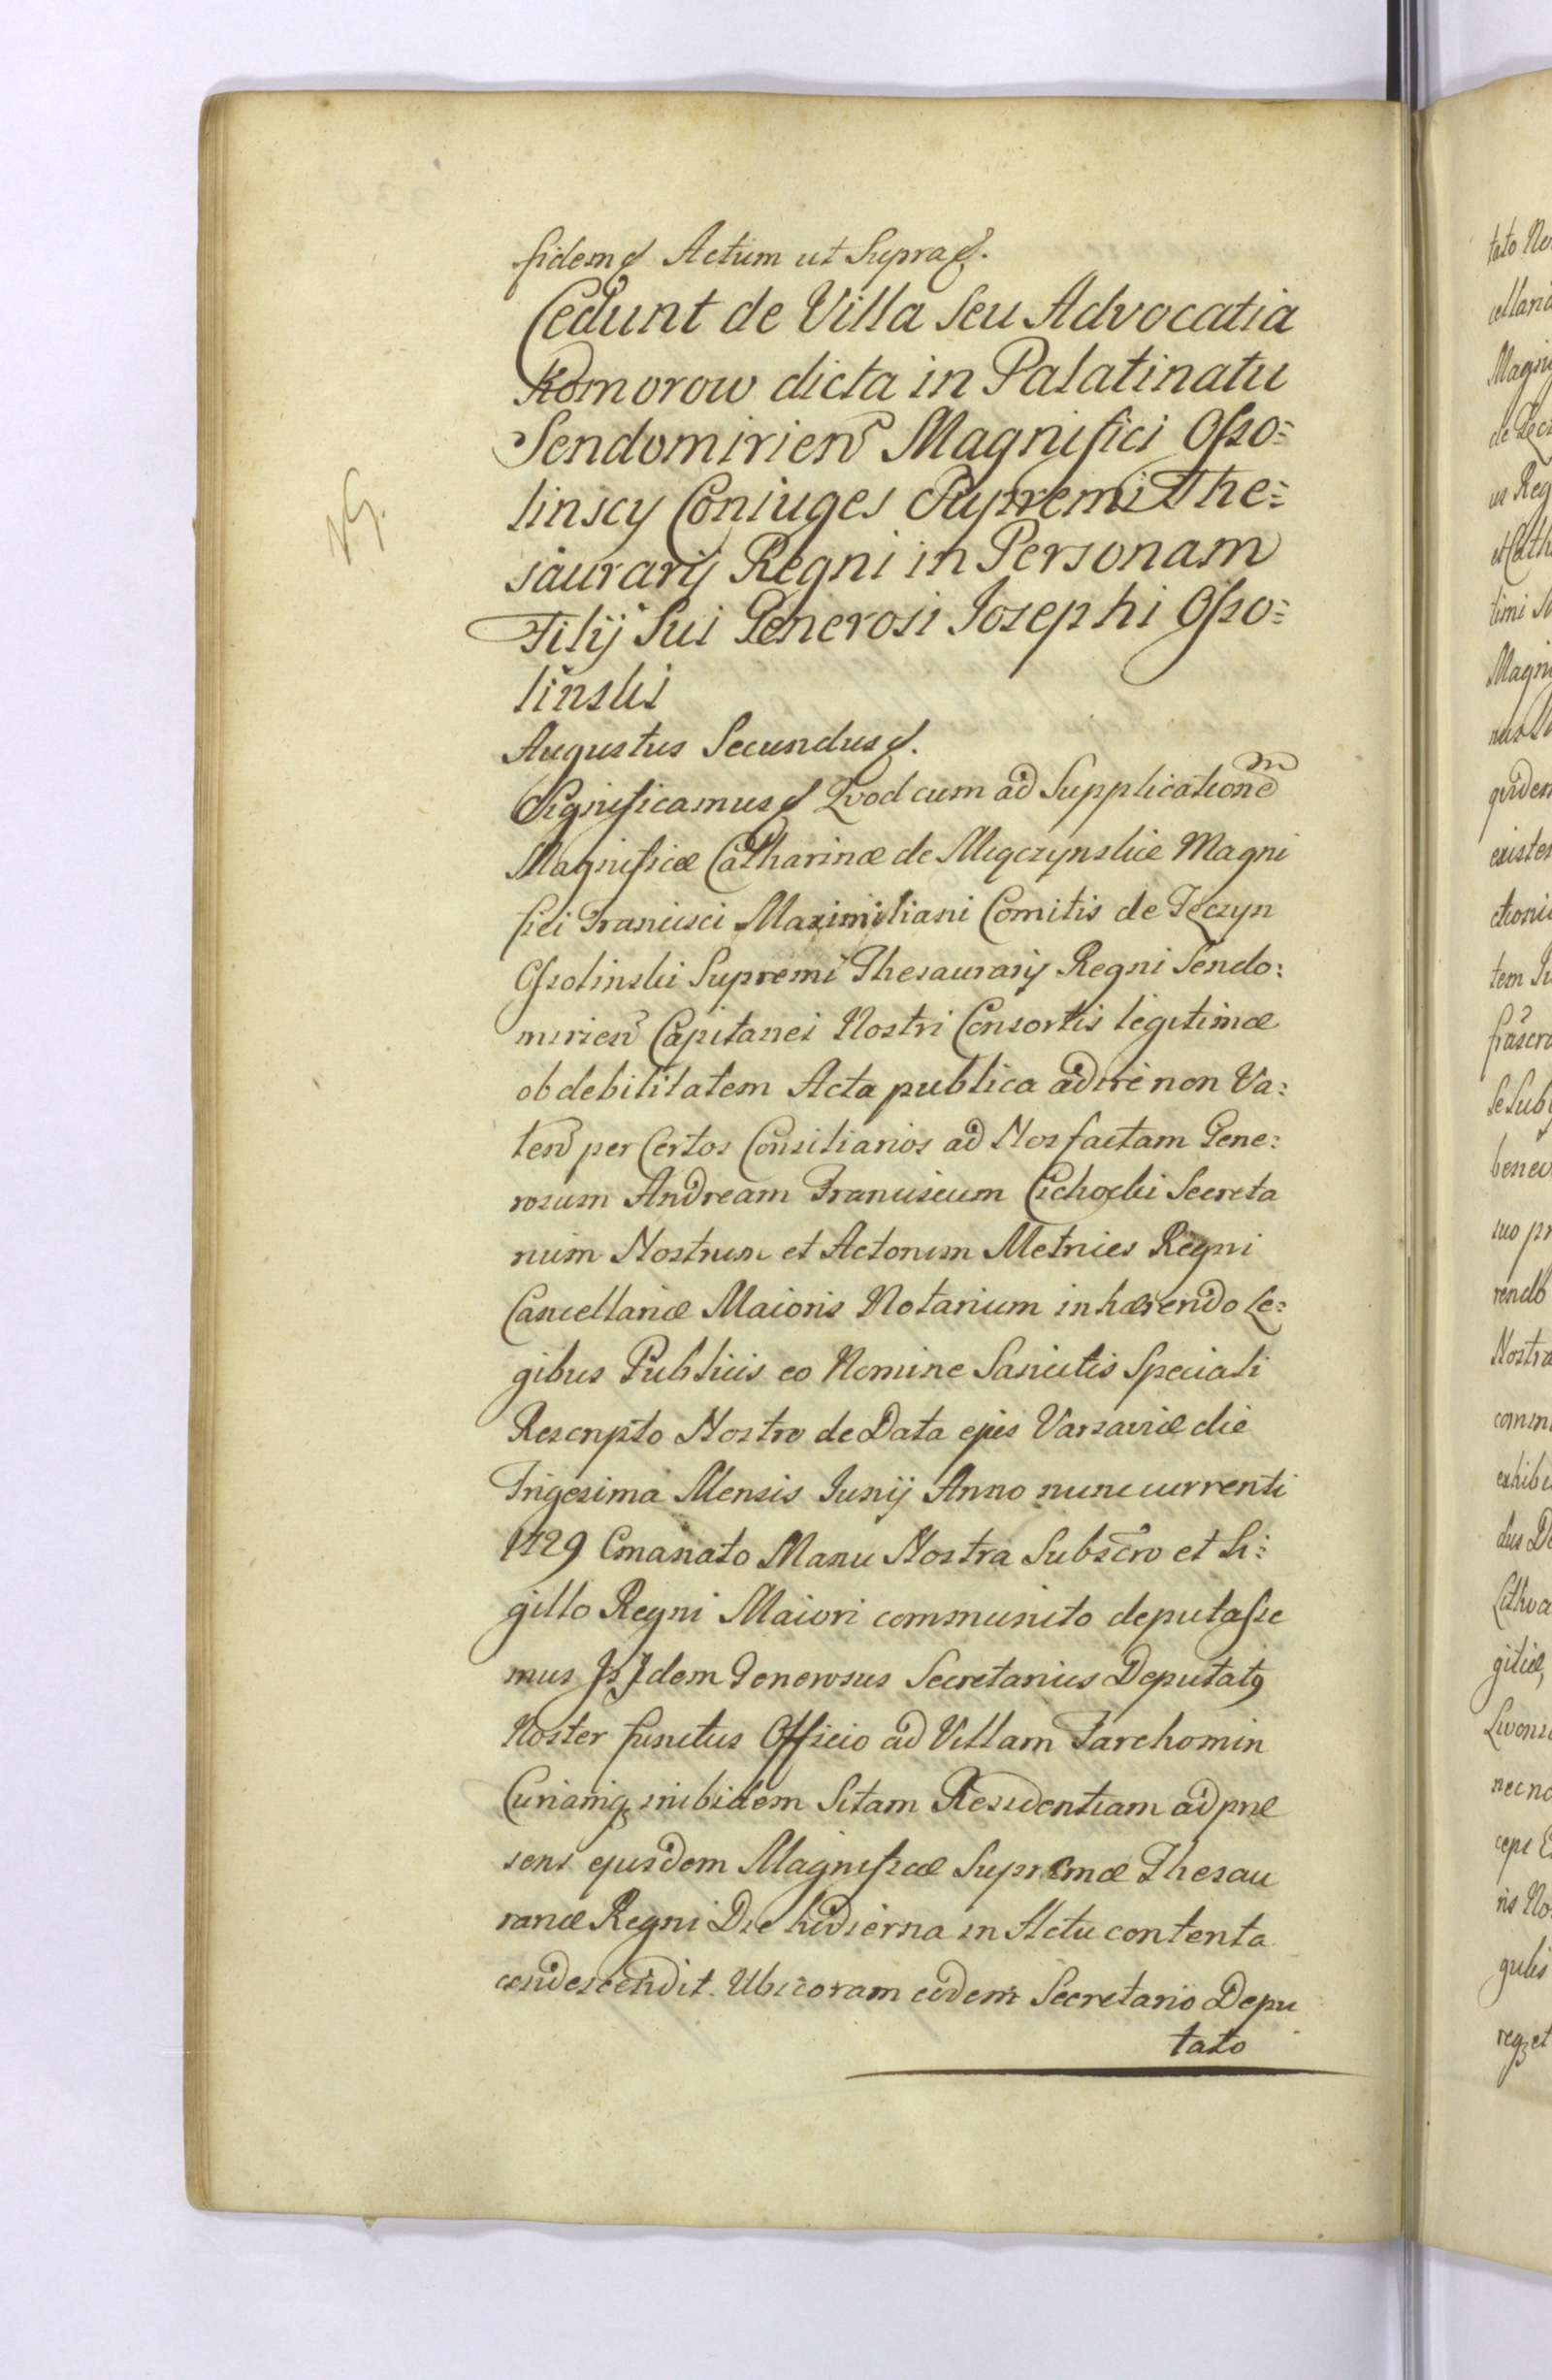 fidem Actum ut Supra
Cedunt de Villa seu Advocatia
Komorow dicta in Palatinatu
Sendomirien Magnifici Osso=
linscy Coniuges Supremi The=
saurarij Regni in Personam
Filij Sui Generosi Josephi Osso=
linski
Augustus Secundus
Significamus Qvod cum ad Supplicationem
Magnificæ Catharinæ de Miączynskie Magni
fici Francisci Maximiliani Comitis de Tęczyn
Ossolinski Supremi Thesaurarij Regni Sendo:
mirien Capitanei Nostri Consortis legitimæ
ob debilitatem Acta publica adire non Va:
len per Certos Consiliarios ad Nos factam Gene:
rosum Andream Franciscum Cichocki Secreta
rium Nostrum et Actorum Metrices Regni
Cancellariæ Maioris Notarium inhærendo Le:
gibus Publicis eo Nomine Sancitis Speciali
Rescripto Nostro de Data ejus Varsaviæ die
Trigesima Mensis Junij Anno nunc currenti
1729 Emanato Manu Nostra Subscro et Si:
gillo Regni Maiori communito deputasse
mus Idem Generosus Secretarius Deputatꝰ
Noster functus Officio ad Villam Tarchomin
Curiamqꝫ inibidem Sitam Residentiam ad præ
sens ejusdem Magnificæ Supremæ Thesau
rariæ Regni Die hodierna in Actu contenta
condescendit. Ubi coram eodem Secretario Depu
tato
NG.